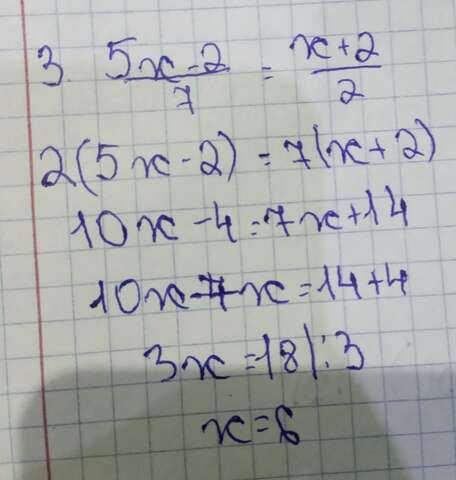 3. 5x-2/7 = x+2/2
2(5x-2)=7(x+2)
10x-4=7x+14
10x-7x=14+4
3x=18|:3
x=6